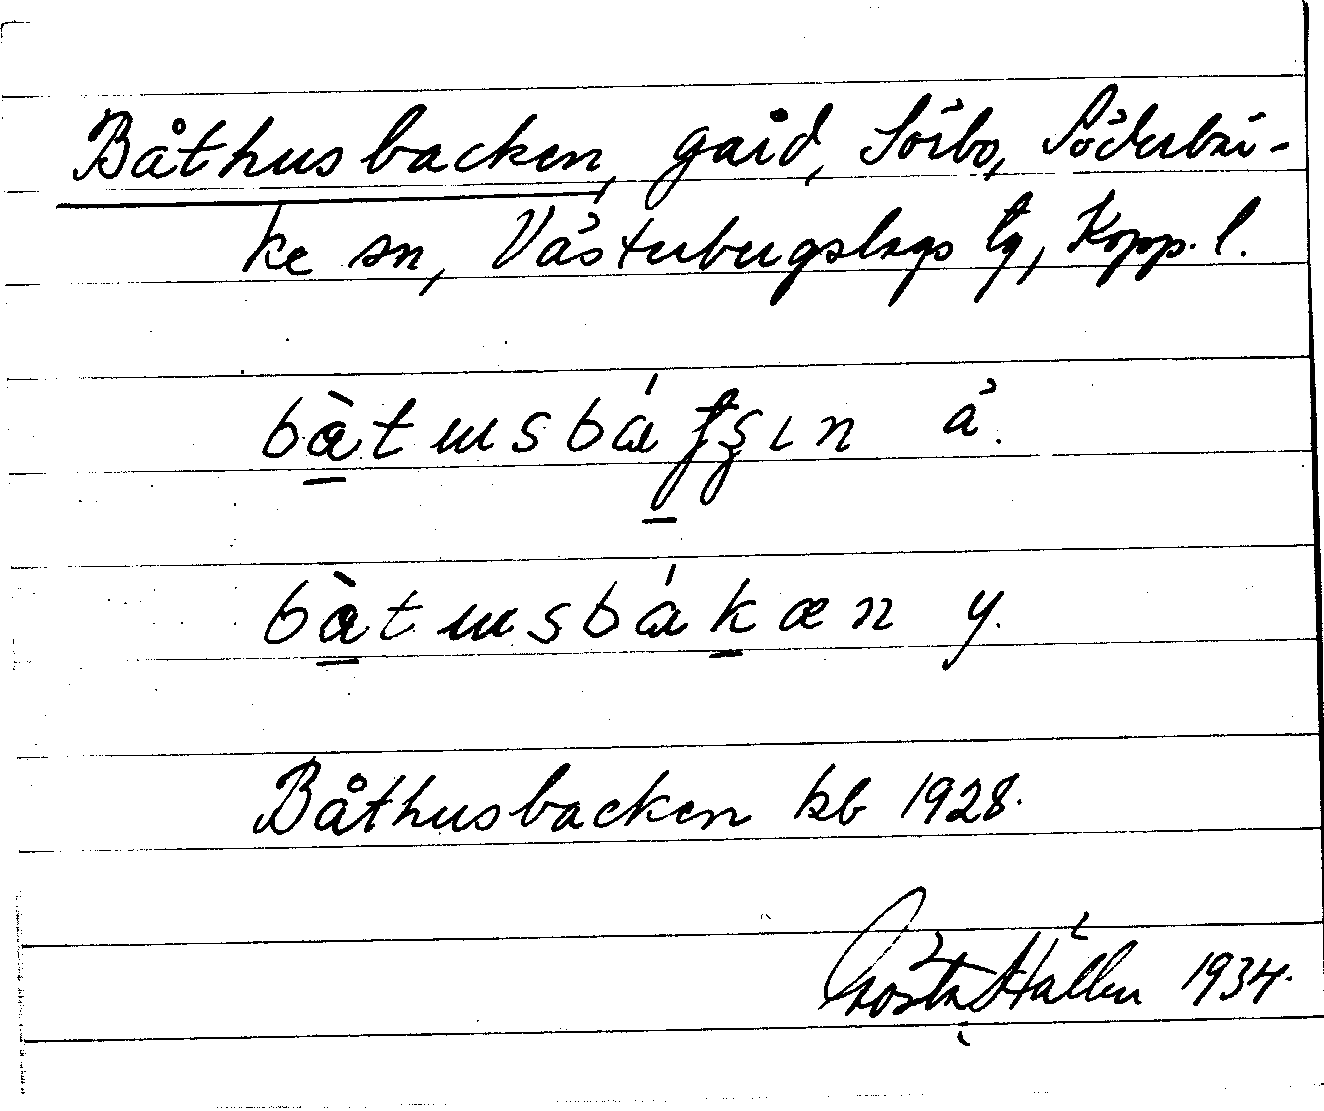 Båthusbacken, gård, Sörbo, Söderbär-
ke sn, Västerbergslags tg, Kopp. l.
bàtɯsbátʂın ä.
bàtɯsbákæn y.
Båthusbacken kb 1928.
Gösta Hållén 1934.